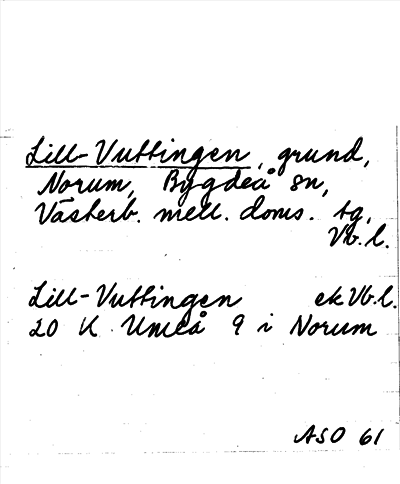 Lill-Vuttingen, grund,
Norum, Bygdeå sn,
Västerb. mell. doms. tg,
Vb.l.
Lill-Vuttingen ek Vb.l.
20 K Umeå 9 i Norum
ASO 61